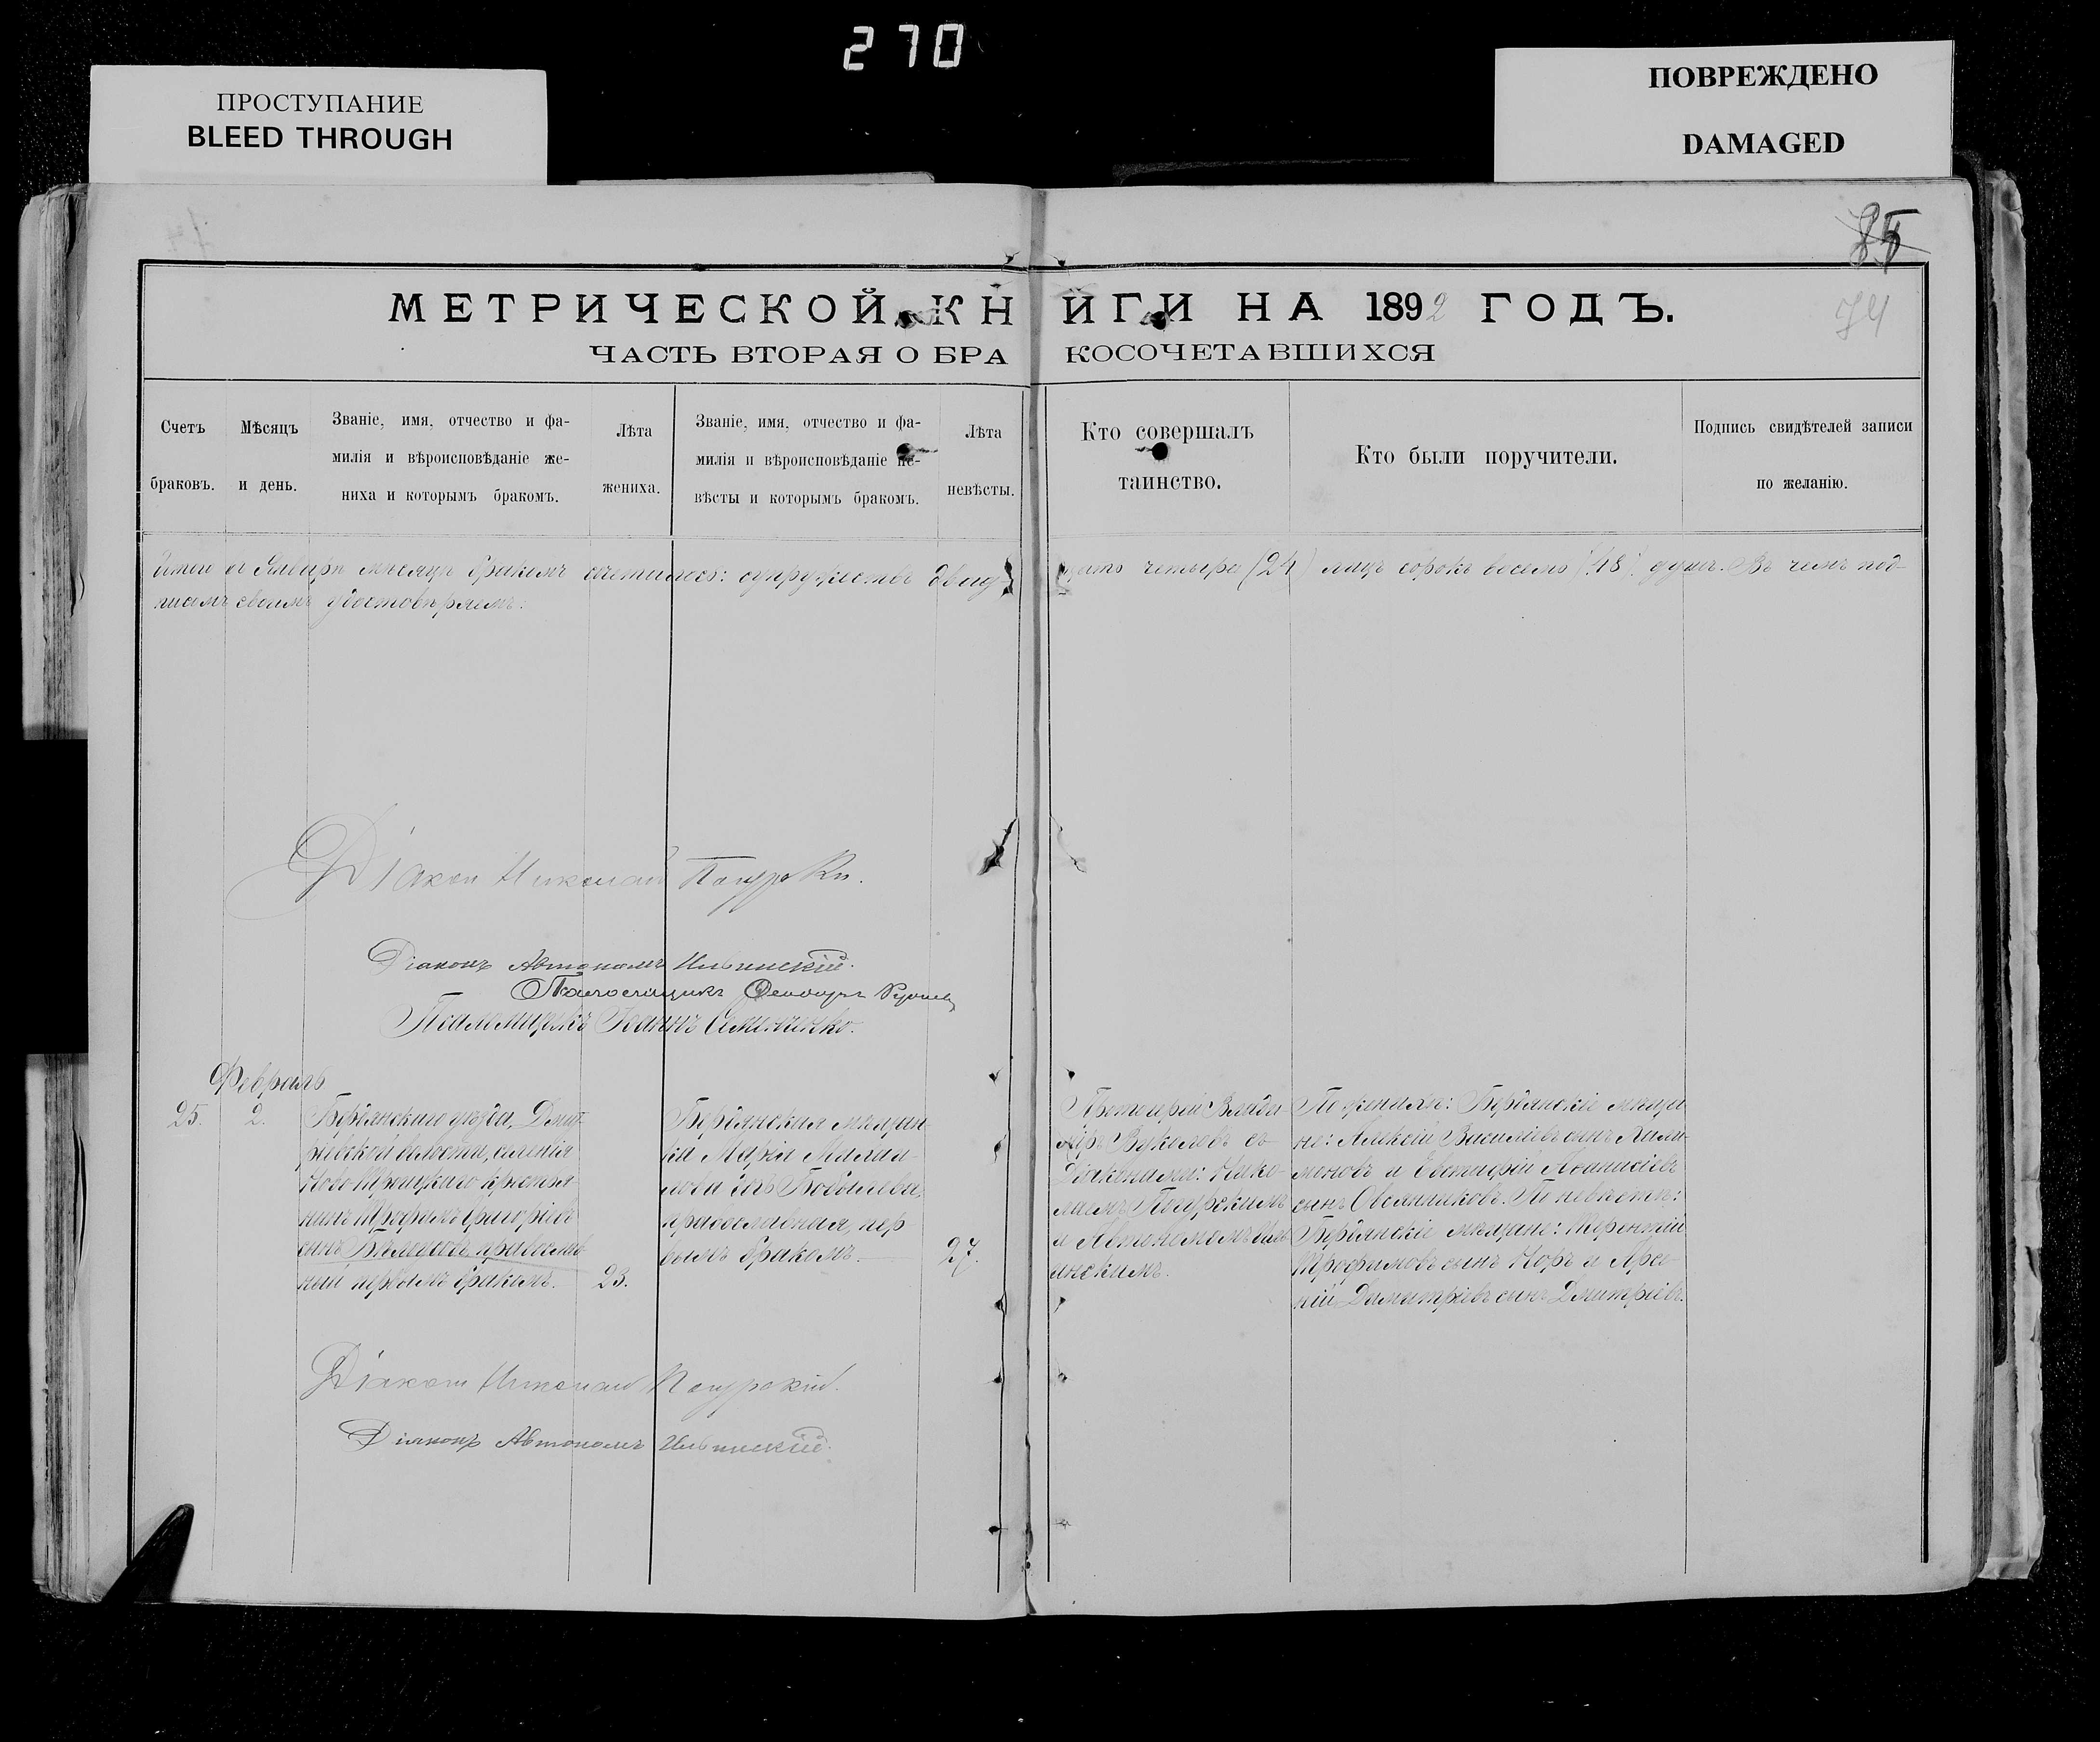 270
ПРОСТУПАНИЕ
BLEED THROUGH
ПОВРЕЖДЕНО
DAMAGED
74
МЕТРИЧЕСКОЙ КНИГИ НА 1892 ГОДЪ.
ЧАСТЬ ВТОРАЯ О БРАКОСОЧЕТАВШИХСЯ
Счетъ
браковъ.
Мѣсяцъ
и день.
Званіе, имя, отчество и фа-
милія и вѣроисповѣданіе же-
ниха и которымъ бракомъ.
Лѣта
жениха.
Званіе, имя, отчество и фа-
милія и вѣроисповѣданіе не-
вѣсты и которымъ бракомъ.
Лѣта
невѣсты.
Кто совершалъ
таинство.
Кто были поручители.
Подпись свидѣтелей записи
по желанію.
Итого въ Январѣ мѣсяцѣ бракомъ сочеталось: супружествъ двадцать четыре (24) лицъ сорокъ восемь (48) душъ. Въ чемъ под-
писомъ своимъ удостовѣряемъ:
Діаконъ Николай
Діаконъ Автономъ Ильинскій.
Псаломщикъ Ѳеодоръ
Псаломщикъ Іоаннъ
Февраль
25.
2.
Бердянскаго уѣзда, Дмит-
ріевской волости, селенія
Ново-Троицкаго крестья-
нинъ Трофимъ Григорьевъ
сынъ православ-
ный первымъ бракомъ.
23.
Бердянская мѣщан-
ка Марія
православная, пер-
вымъ бракомъ.
27.
Протоіерей Влади-
міръ съ
Діаконами: Нико-
лаемъ Погурскимъ
и Автономомъ Иль-
инскимъ.
По женихѣ: Бердянскіе мѣща-
не: Алексій Васильевъ сынъ
и Евстафій Аѳанасіевъ
сынъ Овсянниковъ. По невѣстѣ:
Бердянскіе мѣщане: Терентій
Трофимовъ сынъ Норъ и Арсе-
ній Димитріевъ сынъ Дмитріевъ.
Діаконъ Николай Погурскій.
Діаконъ Автономъ Ильинскій.